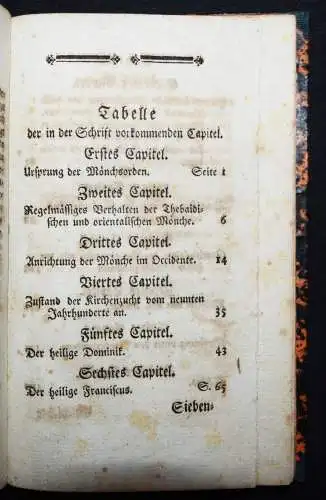 Tabelle
der in der Schrift vorkommenden Capitel.
Erstes Capitel.
Ursprung der Mönchsorden. Seite 1
Zweites Capitel.
Regelmässiges Verhalten der Thebaidi-
schen und orientalischen Mönche. 6
Drittes Capitel.
Anrichtung der Mönche im Occidente. 14
Viertes Capitel.
Zustand der Kirchenzucht vom neunten
Jahrhunderte an. 35
Fünftes Capitel.
Der heilige Dominik. 43
Sechstes Capitel.
Der heilige Franciscus. S. 65
Sieben-